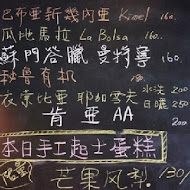 巴布亞新幾內亞 Kimel 160.
瓜地馬拉 La Bolsa 160.
蘇門答臘 曼特寧 160.
秘魯有机
衣索比亞 耶加雪夫 水洗 200
日曬 250
肯亞AA 200
本日手工起士蛋糕
芒果凤梨 130